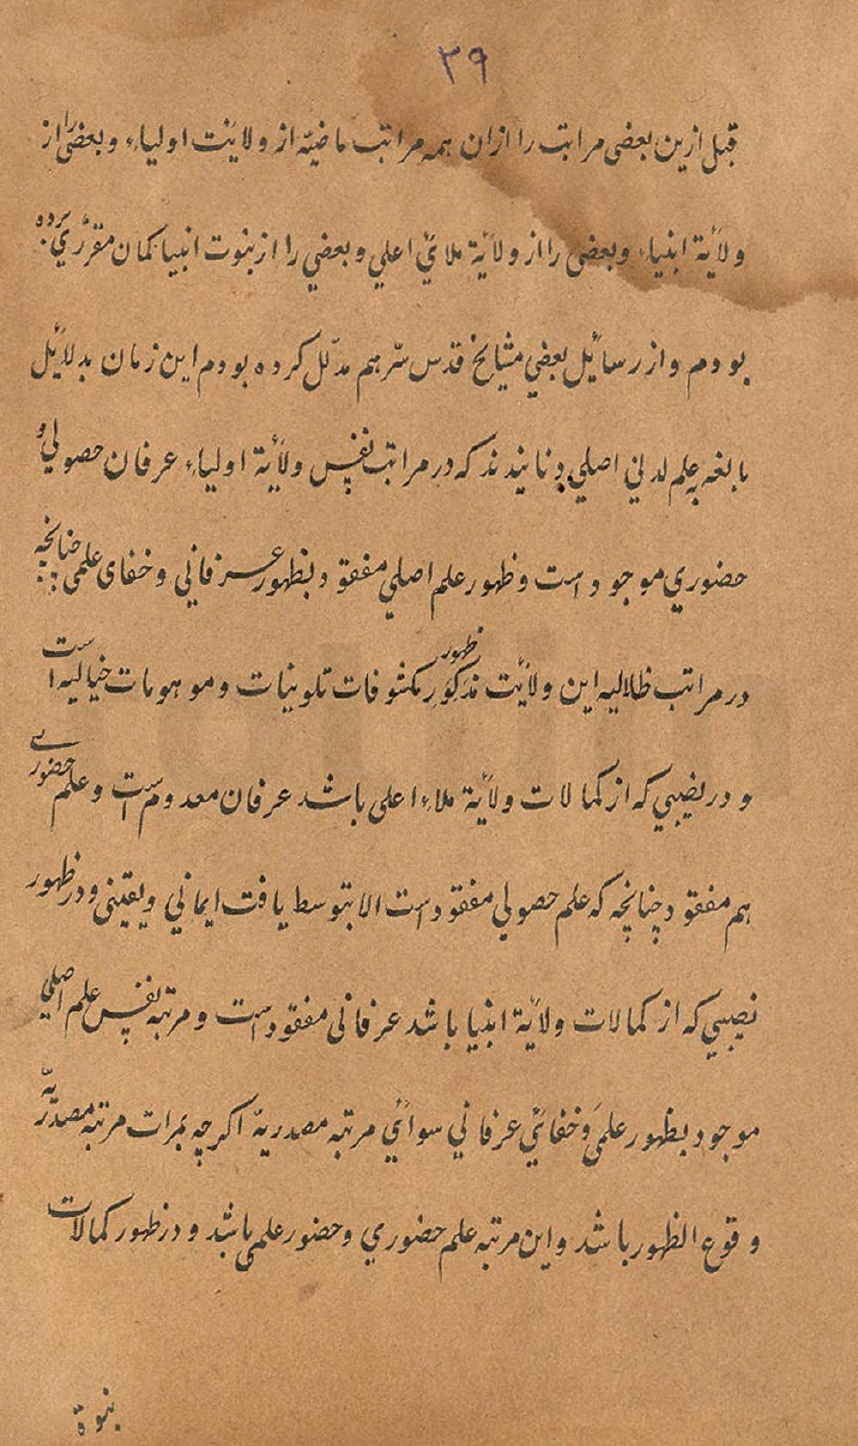 ۳۹
قبل ازین بعضی مراتب را ازان همه مراتب ماضیّه از ولایٔت اولیاء و بعضی را از
ولأیة ابنیاء و بعضی را از ولأیة ملایٔ اعلي و بعضي را از بنوت انبیا کمان مقرّري برده
بودم و از رسائیل بعضي مشایخ قدس سّر هم مدّلل کرده بودم این زمان بدلأیٔل
بالغه به علم لدني اصلي د نایندند که در مراتب نفس ولأیٔة اولیاء عرفان حصولي و
حضوري موجود است و ظهور علم اصلي مفقود بظهور عرفاني و خفای علمی چنانچه
در مراتب ظلالیه این ولأیٔت مذکور ظهور مکشوفات تلوینات و موهومات خیالیه است
و در نصیبي که از کمالات ولأیٔة ملاء اعلی باشد عرفان معدوم است و علم حضوری
هم مفقود چنانچه که علم حصولي مفقود است الا بتوسط یافت ایماني و یقینی و در ظهور
نصیبي که از کمالات ولأیٔة ابنیا باشد عرفانی مفقود است و مرتبه نفس علم اصلي
موجود بظهور علمی و خفایٔي عرفاني سوایٔي مرتبه مصدریهّ اکرچه بمرات مرتبه مصدّریهّ
وقوع الظهور باشد و این مرتبه علم حضوري و حضور علمی باشد و در ظهور کمالات
بنوة